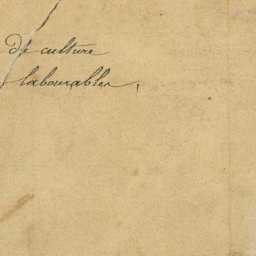 De culture
labourables,